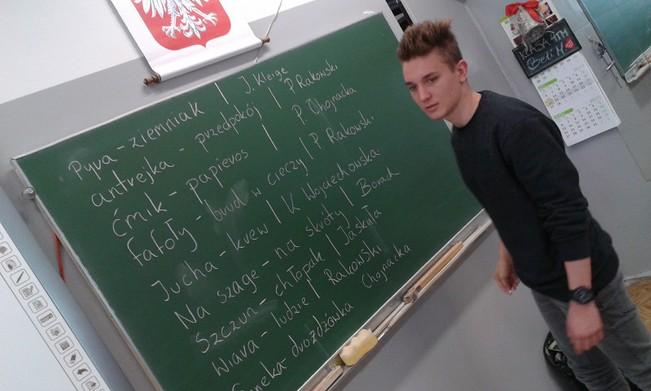 Pyra - ziemniak | J. Kleige
antrejka - przedpokój | P. Rakowski
Ćmik - papieros | P. Chojnacka
fafoły - brud w cieczy | P. Rakowsk.
Jucha - krew | K. Wojciechowska
Na szage - na skróty | Borad
Szczun - chłopak | Jaskuła
Wiara - ludzie | Rakowski
drożdżówka Chojnacka